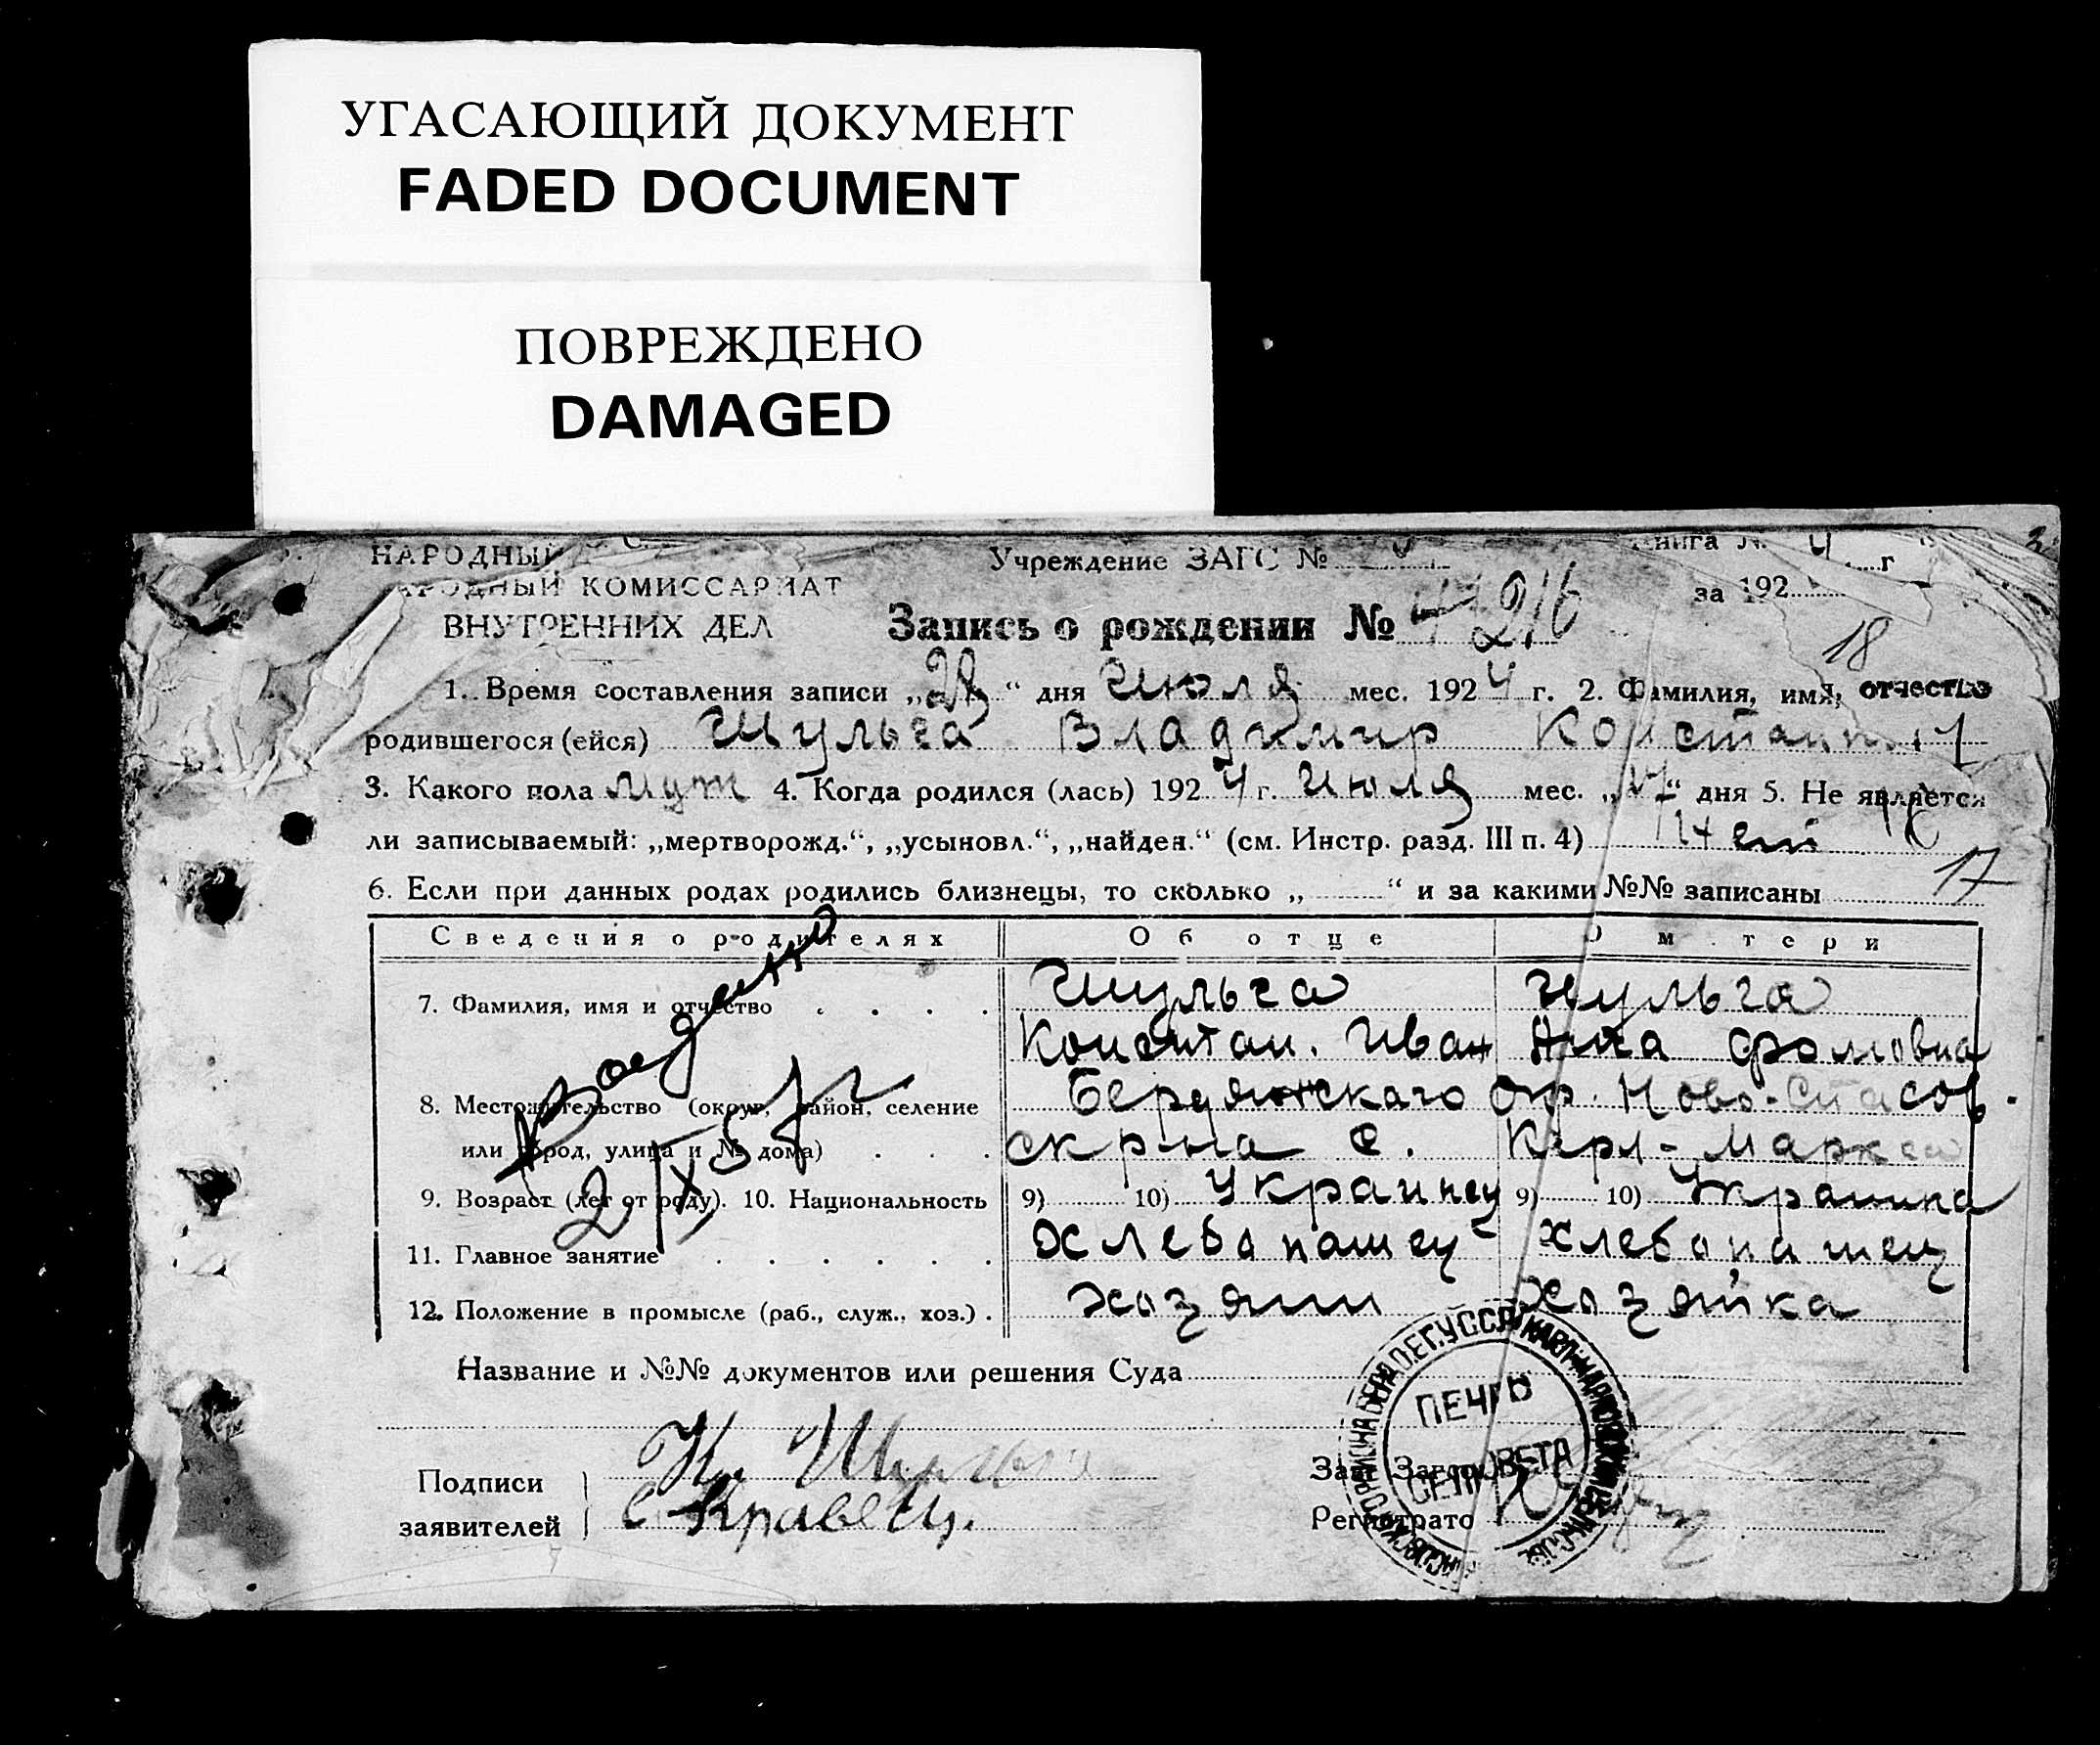 УГАСАЮЩИЙ ДОКУМЕНТ
FADED DOCUMENT
ПОВРЕЖДЕНО
DAMAGED
НАРОДНЫЙ
НАРОДНЫЙ КОМИССАРИАТ
ВНУТРЕННИХ ДЕЛ
Учреждение ЗАГС №
Книга № 4
за 192 г
Запись о рождении № 216
18
1. Время составления записи „28“ дня Июля мес. 1924 г. 2. Фамилия, имя, отчество
родившегося (ейся) Шульга Владимир
3. Какого пола муж 4. Когда родился (лась) 1924 г. Июля мес. „17“ дня 5. Не является
ли записываемый: „мертворожд.“, „усыновл.“, „найден.“ (см. Инстр. разд. III п. 4)
17
6. Если при данных родах родились близнецы, то сколько „ “ и за какими №№ записаны
Сведения о родителях Об отце О матери
7. Фамилия, имя и отчество Шульга Шульга
Констан. Иван Анна Фомовна
8. Местожительство (округ, район, селение Бердянского окр. Ново-Спасов.
или город, улица и № дома) с. Карл-Маркса
9. Возраст (лет от роду). 10. Национальность 9) 10) Украинец 9) 10) Украинка
11. Главное занятие Хлебопашец хлебопашец
12. Положение в промысле (раб., служ., хоз.) хозяин хозяйка
Название и №№ документов или решения Суда
ПЕЧАТЬ
СЕЛЬСОВЕТА
Подписи
заявителей
Шульга
Кравец.
Зав. Загсом
Регистратор